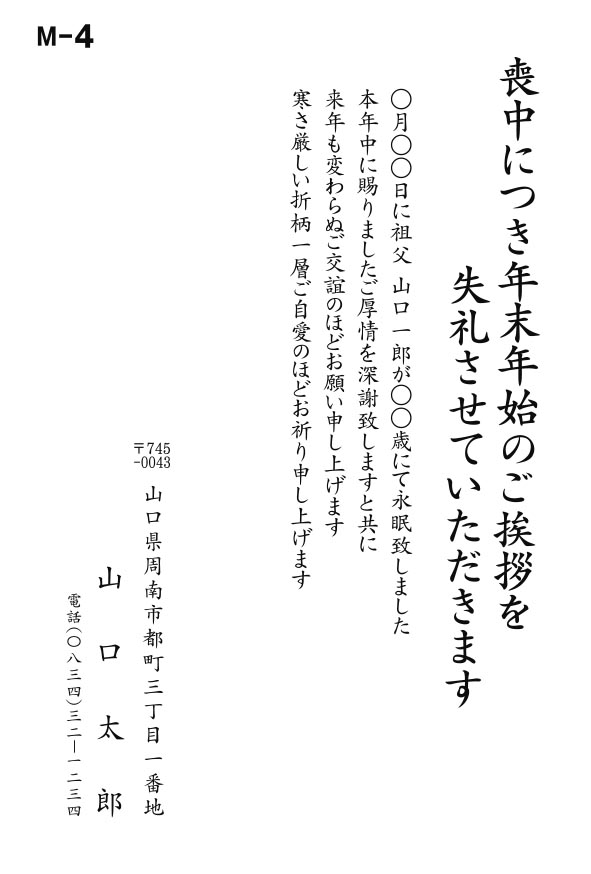 M-4
喪中につき年末年始のご挨拶を
失礼させていただきます
〇月〇〇日に祖父 山口一郎が〇〇歳にて永眠致しました
本年中に賜りましたご厚情を深謝致しますと共に
来年も変わらぬご交誼のほどお願い申し上げます
寒さ厳しい折柄一層ご自愛のほどお祈り申し上げます
〒745
-0043
山口県周南市都町三丁目一番地
山口太郎
電話(〇八三四)三二―一二三四